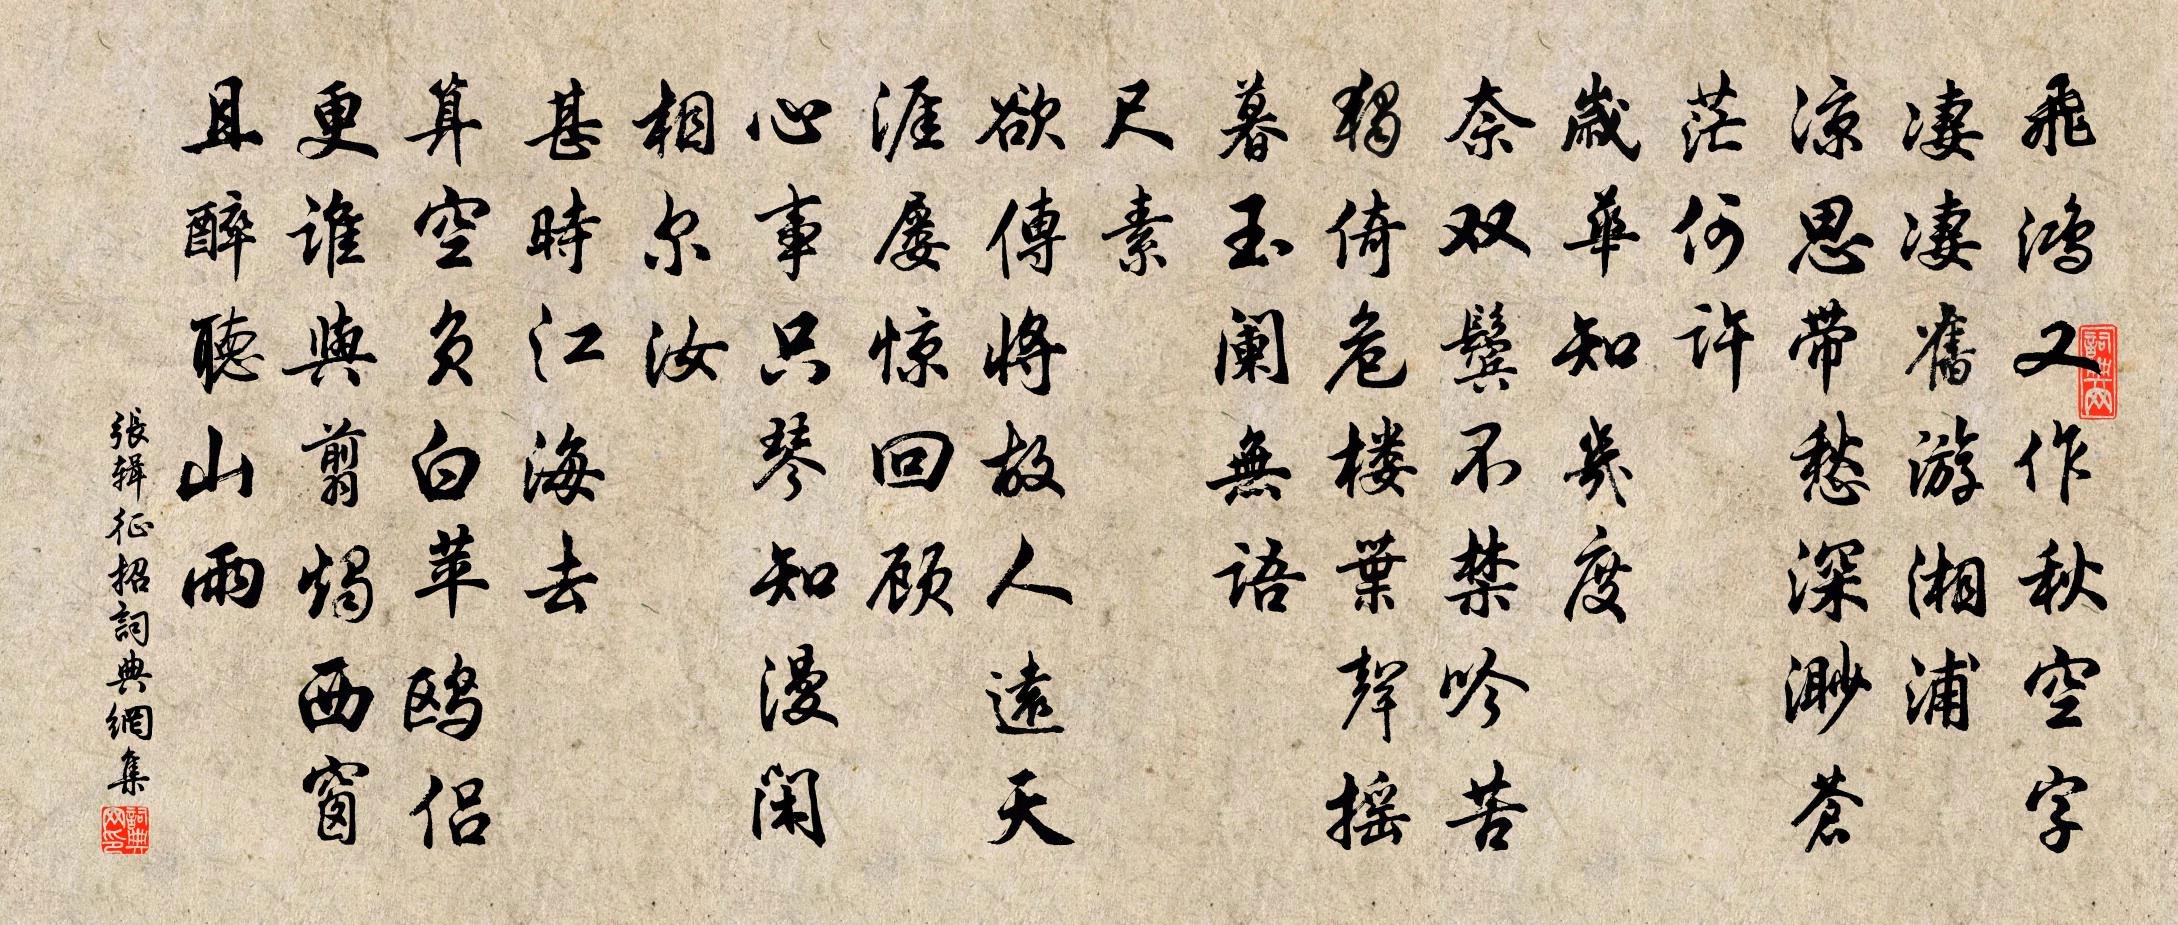 飛鴻又作秋空字
凄凄舊游湘浦
涼思帶愁深渺蒼
茫何許
歲華知幾度
奈双鬢不禁吟苦
獨倚危楼葉聲摇
暮玉阑無語
尺素
欲傳將故人遠天
涯屡惊回顾
心事只琴知漫閑
相尔汝
甚時江海去
算空負白苹鸥侣
更誰與剪燭西窗
且醉聽山雨
張辑征招詞典網集
詞典网
詞典网印